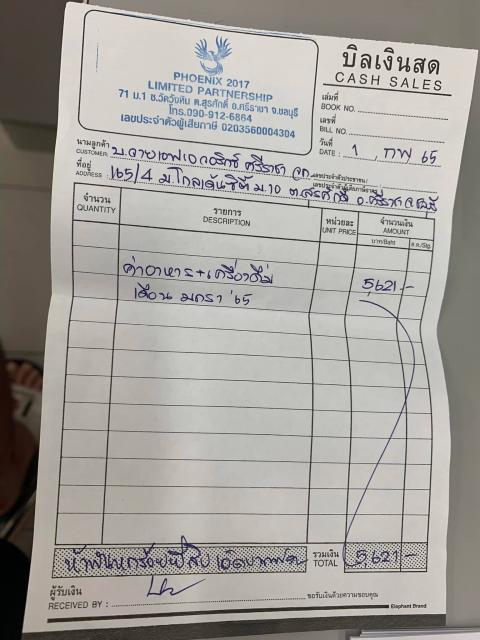 PHOENIX 2017
LIMITED PARTNERSHIP
71 ม.1 ซ.วัดวังหิน ต.สุรศักดิ์ อ.ศรีราชา จ.ชลบุรี
โทร.090-912-6864
เลขประจำตัวผู้เสียภาษี 0203560004304
บิลเงินสด
CASH SALES
เล่มที่
BOOK NO.
เลขที่
BILL NO.
วันที่
DATE : 1 กพ 65
นามลูกค้า
CUSTOMER ศรีราชา จก
เลขประจำตัวประชาชน /
ที่อยู่
ADDRESS : 165/4 ม.โกลเด้นซิตี้ ม.10 ต.สุรศักดิ์ อ.ศรีราชา จ.ชลบุรี
เลขประจำตัวผู้เสียภาษีอากร
จำนวน
QUANTITY
รายการ
DESCRIPTION
หน่วยละ
UNIT PRICE
จำนวนเงิน
AMOUNT
บาท/Baht ส.ต./Stg.
ค่าอาหาร+เครื่องดื่ม 5,621.-
เดือน มกรา '65
ห้าพันหกร้อยยี่สิบเอ็ดบาทถ้วน
รวมเงิน
TOTAL 5,621.-
ผู้รับเงิน
RECEIVED BY :
ขอรับเงินด้วยความขอบคุณ
Elephant Brand